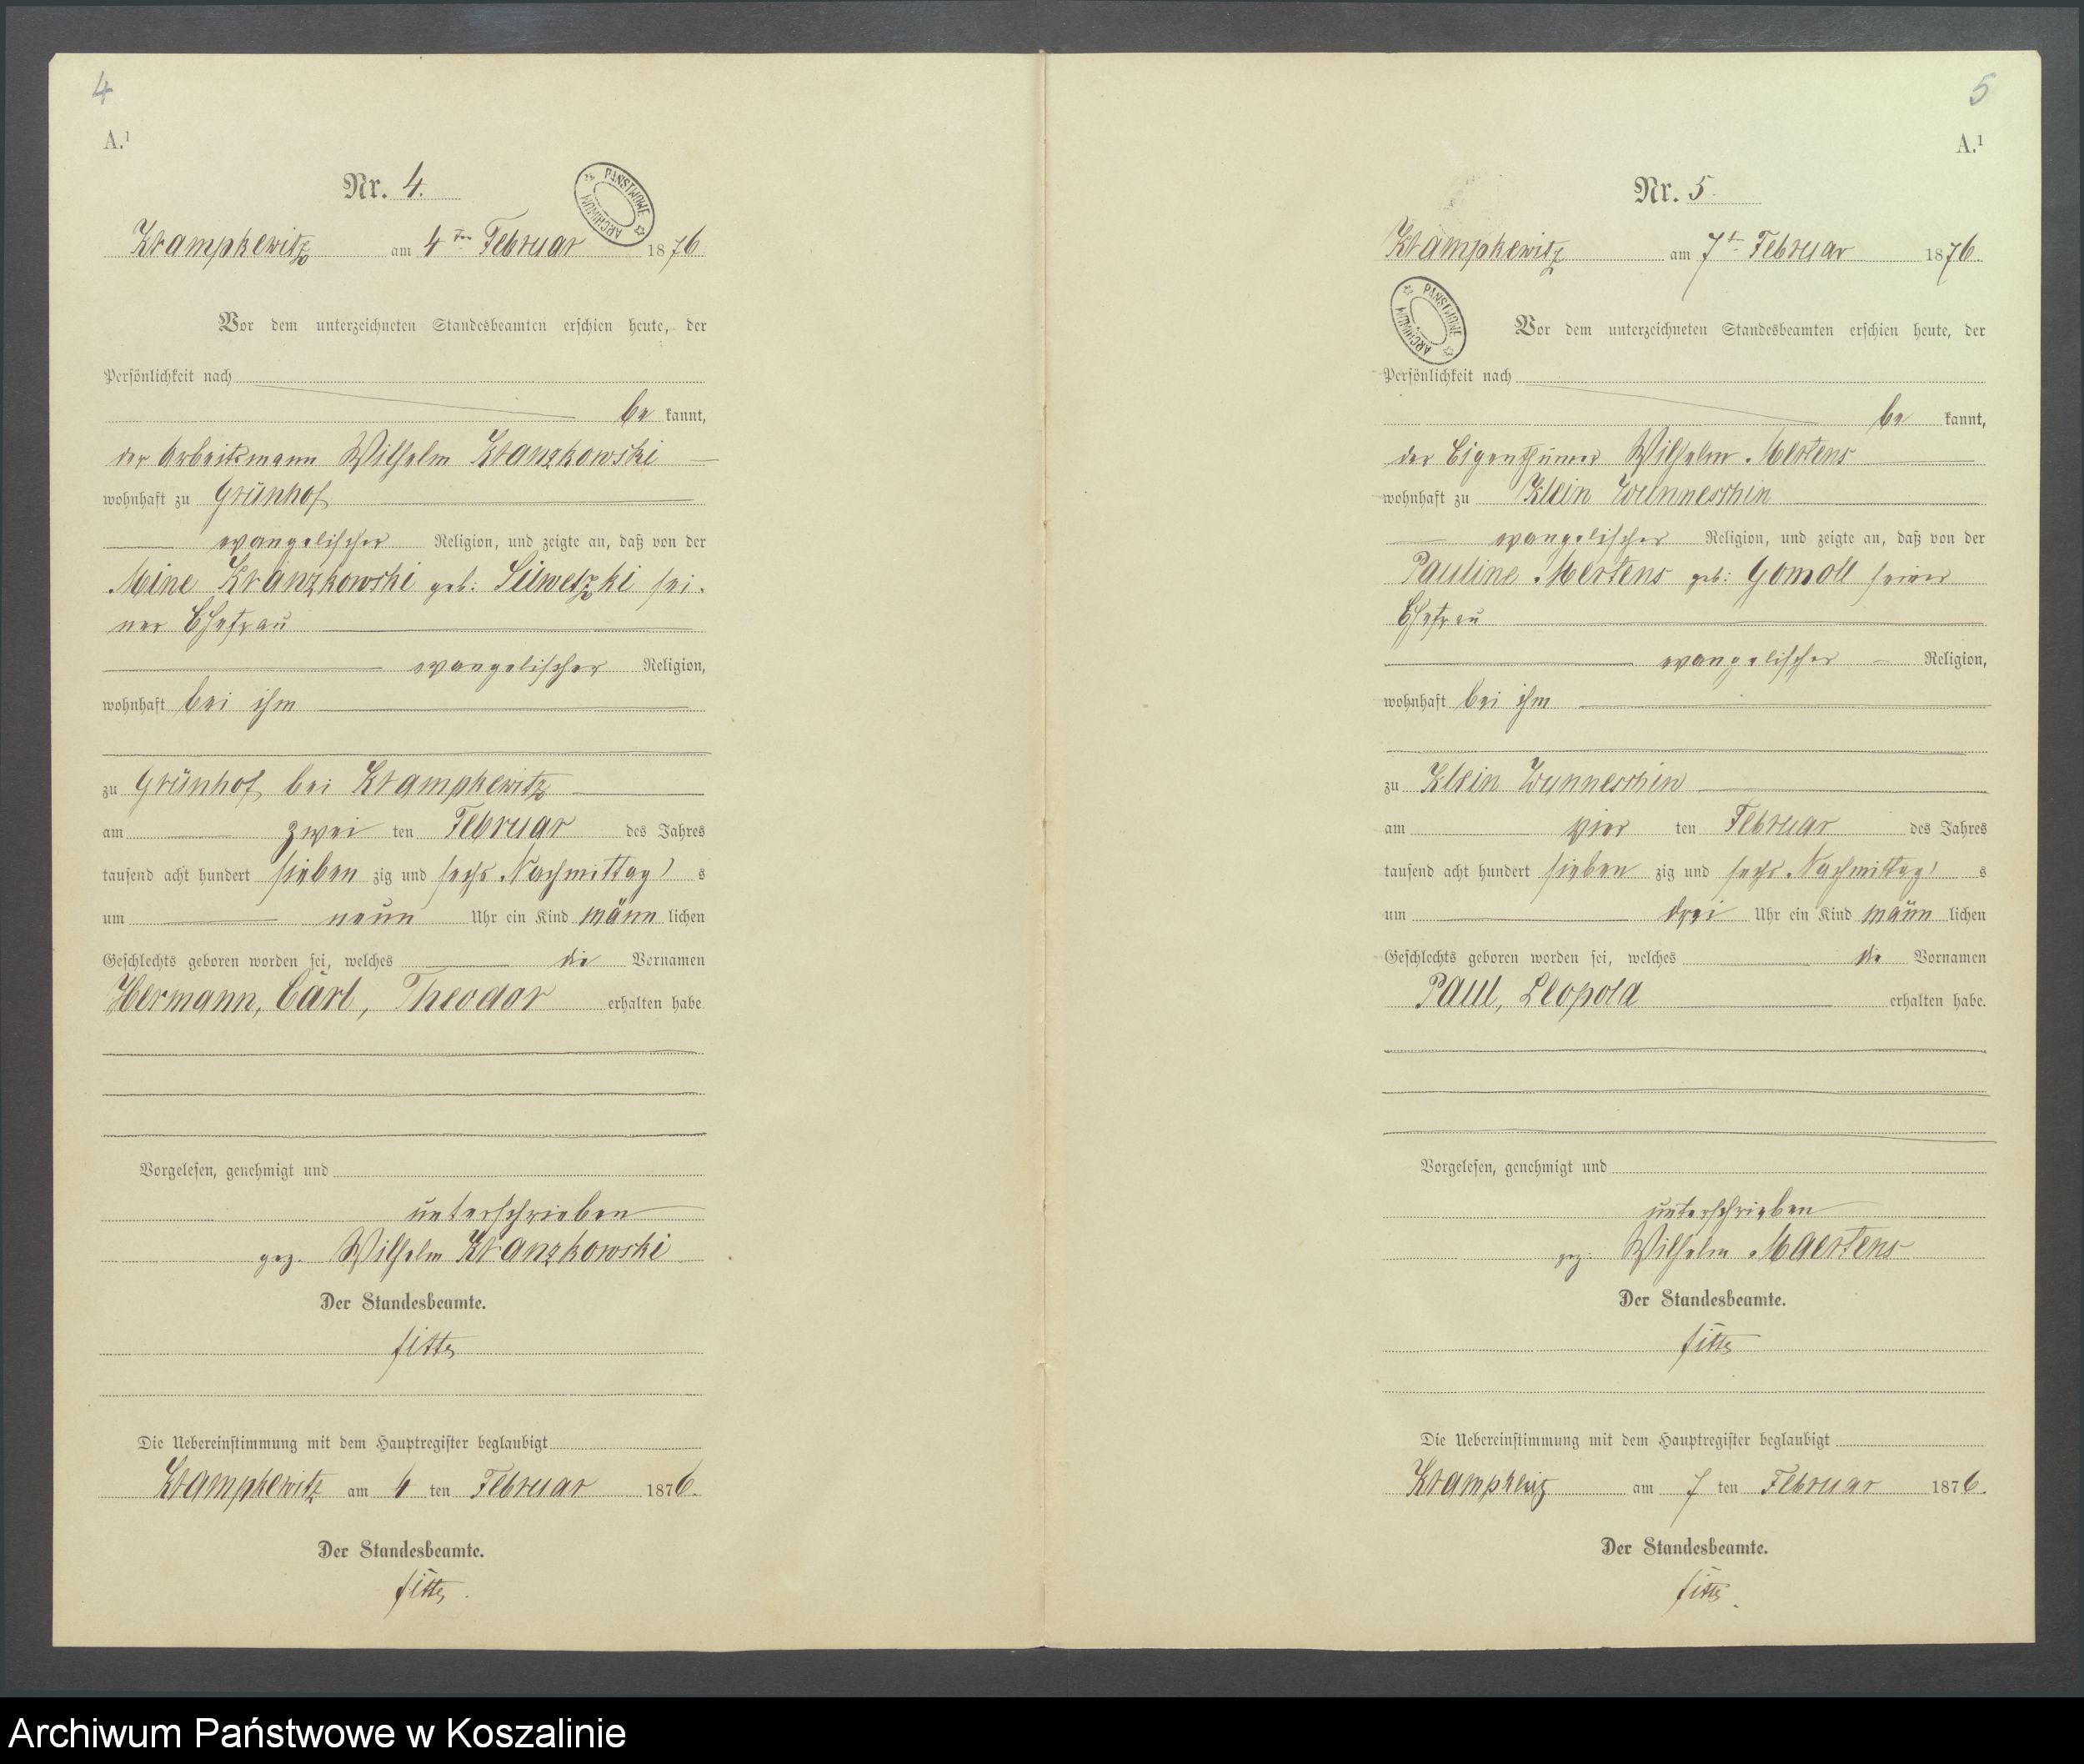 4
A.¹
Nr. 4.
PAŃSTWOWE ARCHIWUM
Krampkewitz am 4ten Februar 1876.
Vor dem unterzeichneten Standesbeamten erschien heute, der
Persönlichkeit nach
be kannt,
der Arbeitsmann Wilhelm Kranzkowski
wohnhaft zu Grünhof
evangelischer Religion, und zeigte an, daß von der
Mine Kranzkowski geb: sei-
ner Ehefrau
evangelischer Religion,
wohnhaft bei ihm
zu Grünhof bei Krampkewitz
am zwei ten Februar des Jahres
tausend acht hundert sieben zig und sechs Nachmittag s
um neun Uhr ein Kind männ lichen
Geschlechts geboren worden sei, welches die Vornamen
Hermann, Carl, Theodor erhalten habe.
Vorgelesen, genehmigt und
unterschrieben
gez. Wilhelm Kranzkowski
Der Standesbeamte.
Die Uebereinstimmung mit dem Hauptregister beglaubigt
Krampkewitz am 4 ten Februar 1876.
Der Standesbeamte.
5
A.¹
Nr. 5.
Krampkewitz am 7t Februar 1876.
PAŃSTWOWE ARCHIWUM
Vor dem unterzeichneten Standesbeamten erschien heute, der
Persönlichkeit nach
be kannt,
der Eigenthümer Wilhelm Mertens
wohnhaft zu Klein Wunneschin
evangelischer Religion, und zeigte an, daß von der
Pauline Mertens geb: Gomoll seiner
Ehefrau
evangelischer Religion,
wohnhaft bei ihm
zu Klein Wunneschin
am vier ten Februar des Jahres
tausend acht hundert sieben zig und sechs Nachmittag s
um drei Uhr ein Kind männ lichen
Geschlechts geboren worden sei, welches die Vornamen
Paul, Leopold erhalten habe.
Vorgelesen, genehmigt und
unterschrieben
gez: Wilhelm Maertens
Der Standesbeamte.
Die Uebereinstimmung mit dem Hauptregister beglaubigt
Krampkewitz am 7 ten Februar 1876.
Der Standesbeamte.
Archiwum Państwowe w Koszalinie